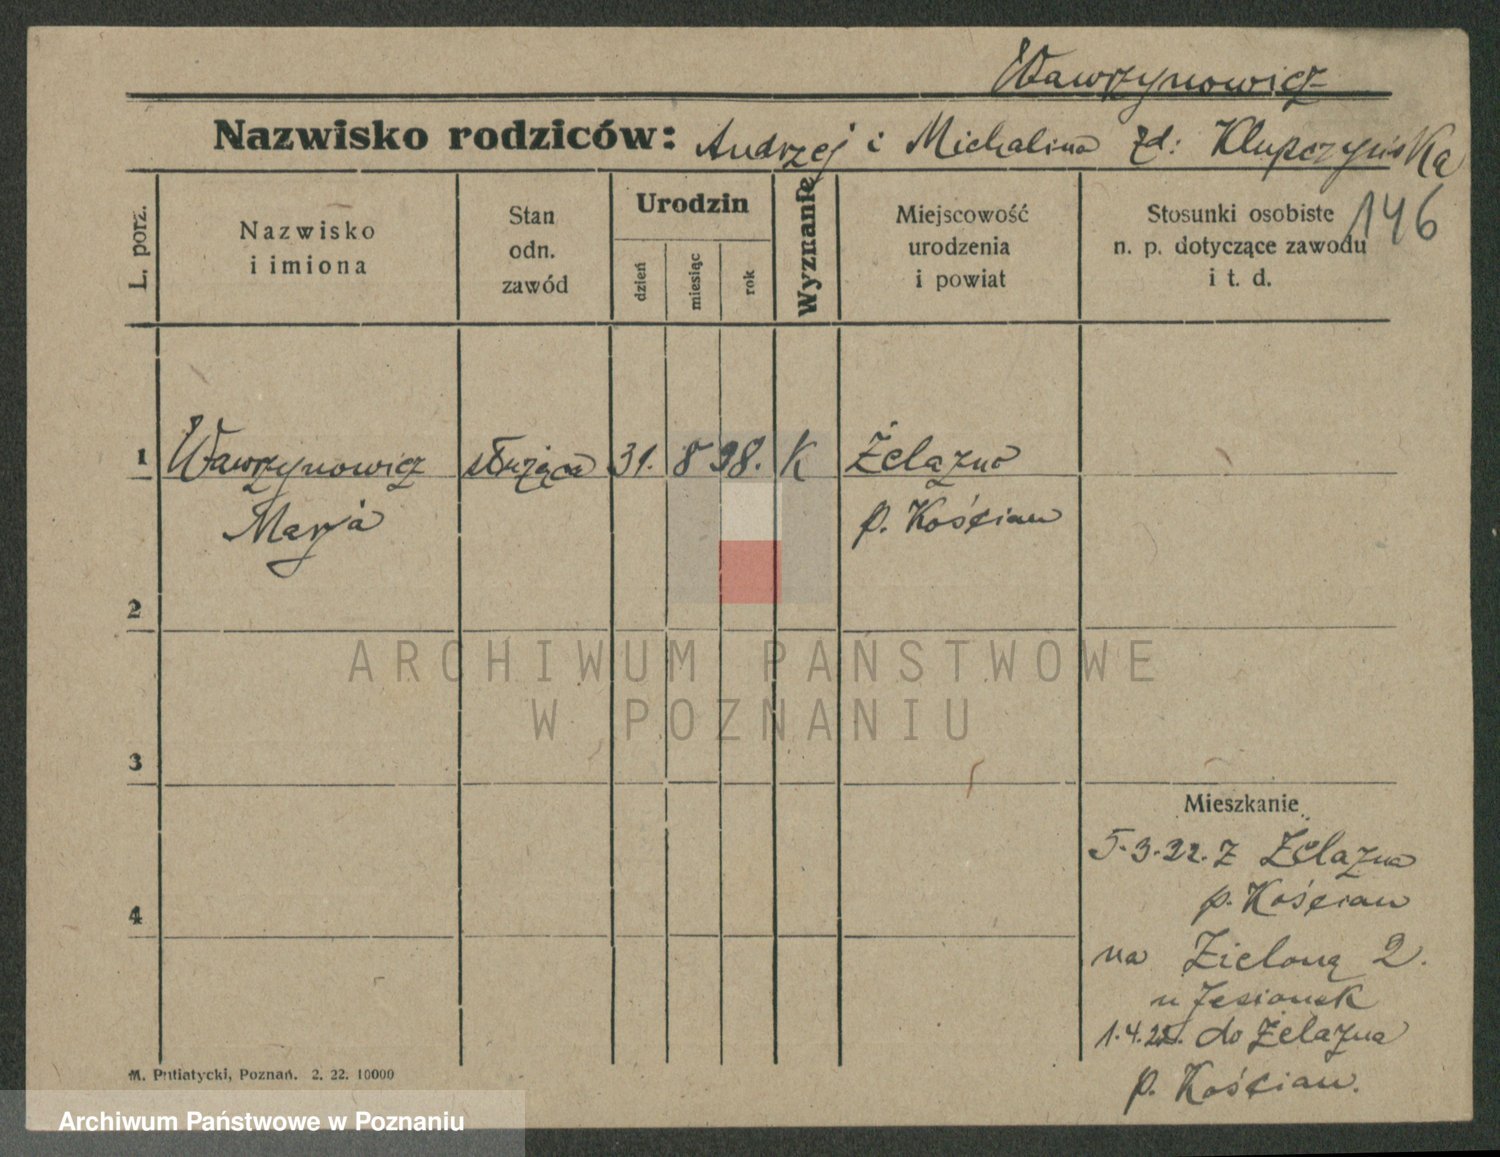 Wawrzynowicz
Nazwisko rodziców: Andrzej i Michalina zd: Klupczyńska
146
L. porz.
Nazwisko
i imiona
Stan
odn.
zawód
Urodzin
dzień
miesiąc
rok
Wyznanie
Miejscowość
urodzenia
i powiat
Stosunki osobiste
n. p. dotyczące zawodu
i t. d.
1 Wawrzynowicz służąca 31. 8 98. K Żelazno
Marja p. Kościan
2
ARCHIWUM PAŃSTWOWE
W POZNANIU
3
Mieszkanie
5.3.22. z Żelazna
p. Kościan
4
na Zieloną 2.
u Jesionek
1.4.22. do Żelazna
p. Kościan.
M. Putiatycki, Poznań. 2. 22. 10000
Archiwum Państwowe w Poznaniu